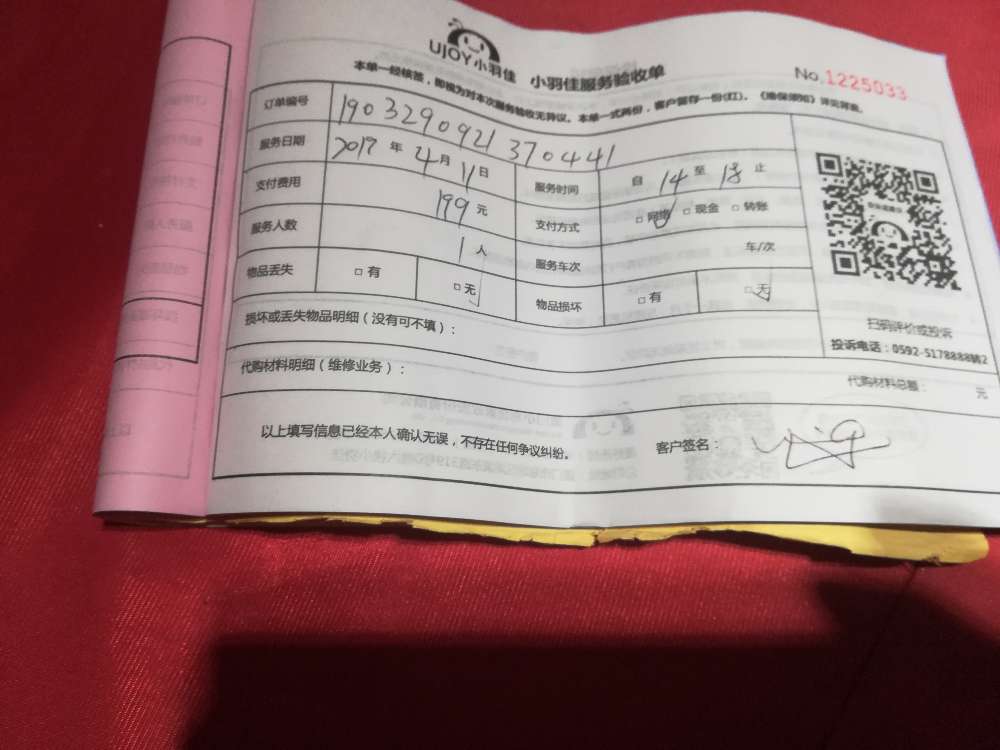 UJOY小羽佳 小羽佳服务验收单 No.1225033
本单一经核签，即视为对本次服务验收无异议。本单一式两份，客户留存一份(红)。《维保须知》详见背面。
订单编号 190329092137044​1
服务日期 2017 年 4 月 11 日 服务时间 自 14 至 18 止
支付费用 199 元 支付方式 □ 网络 □ 现金 □ 转账
服务人数 1 人 服务车次 车/次
物品丢失 □ 有 □ 无 物品损坏 □ 有 □ 无
损坏或丢失物品明细（没有可不填）：
扫码评价或投诉
投诉电话：0592-5178888转2
代购材料明细（维修业务）： 代购材料总额： 元
以上填写信息已经本人确认无误，不存在任何争议纠纷。 客户签名：